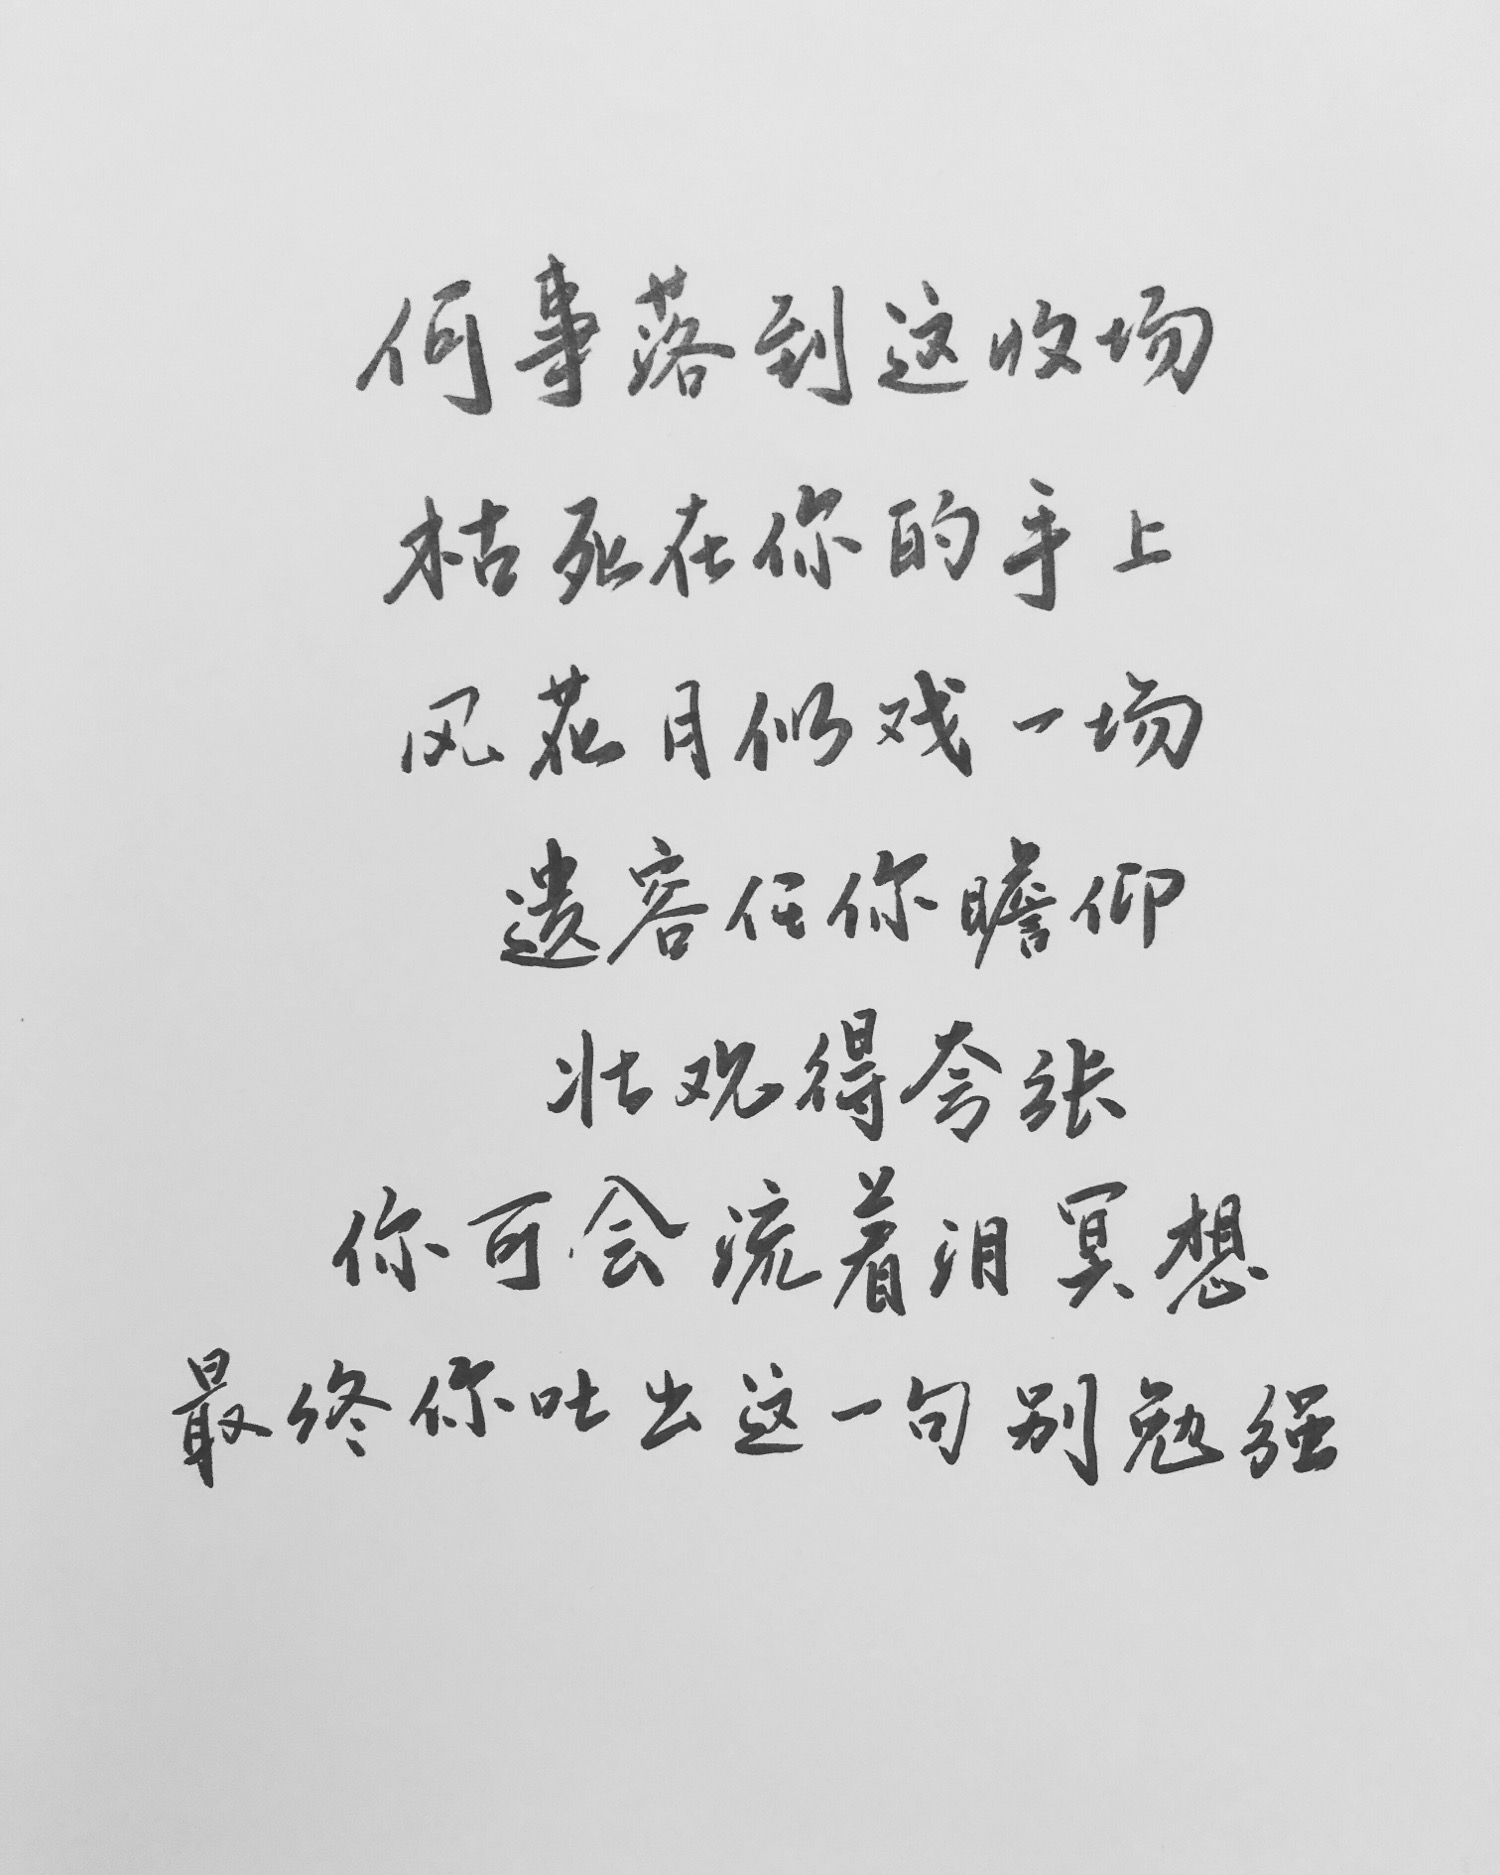 何事落到这收场
枯死在你的手上
风花月似戏一场
遗容任你瞻仰
壮观得夸张
你可会流着泪冥想
最终你吐出这一句别勉强